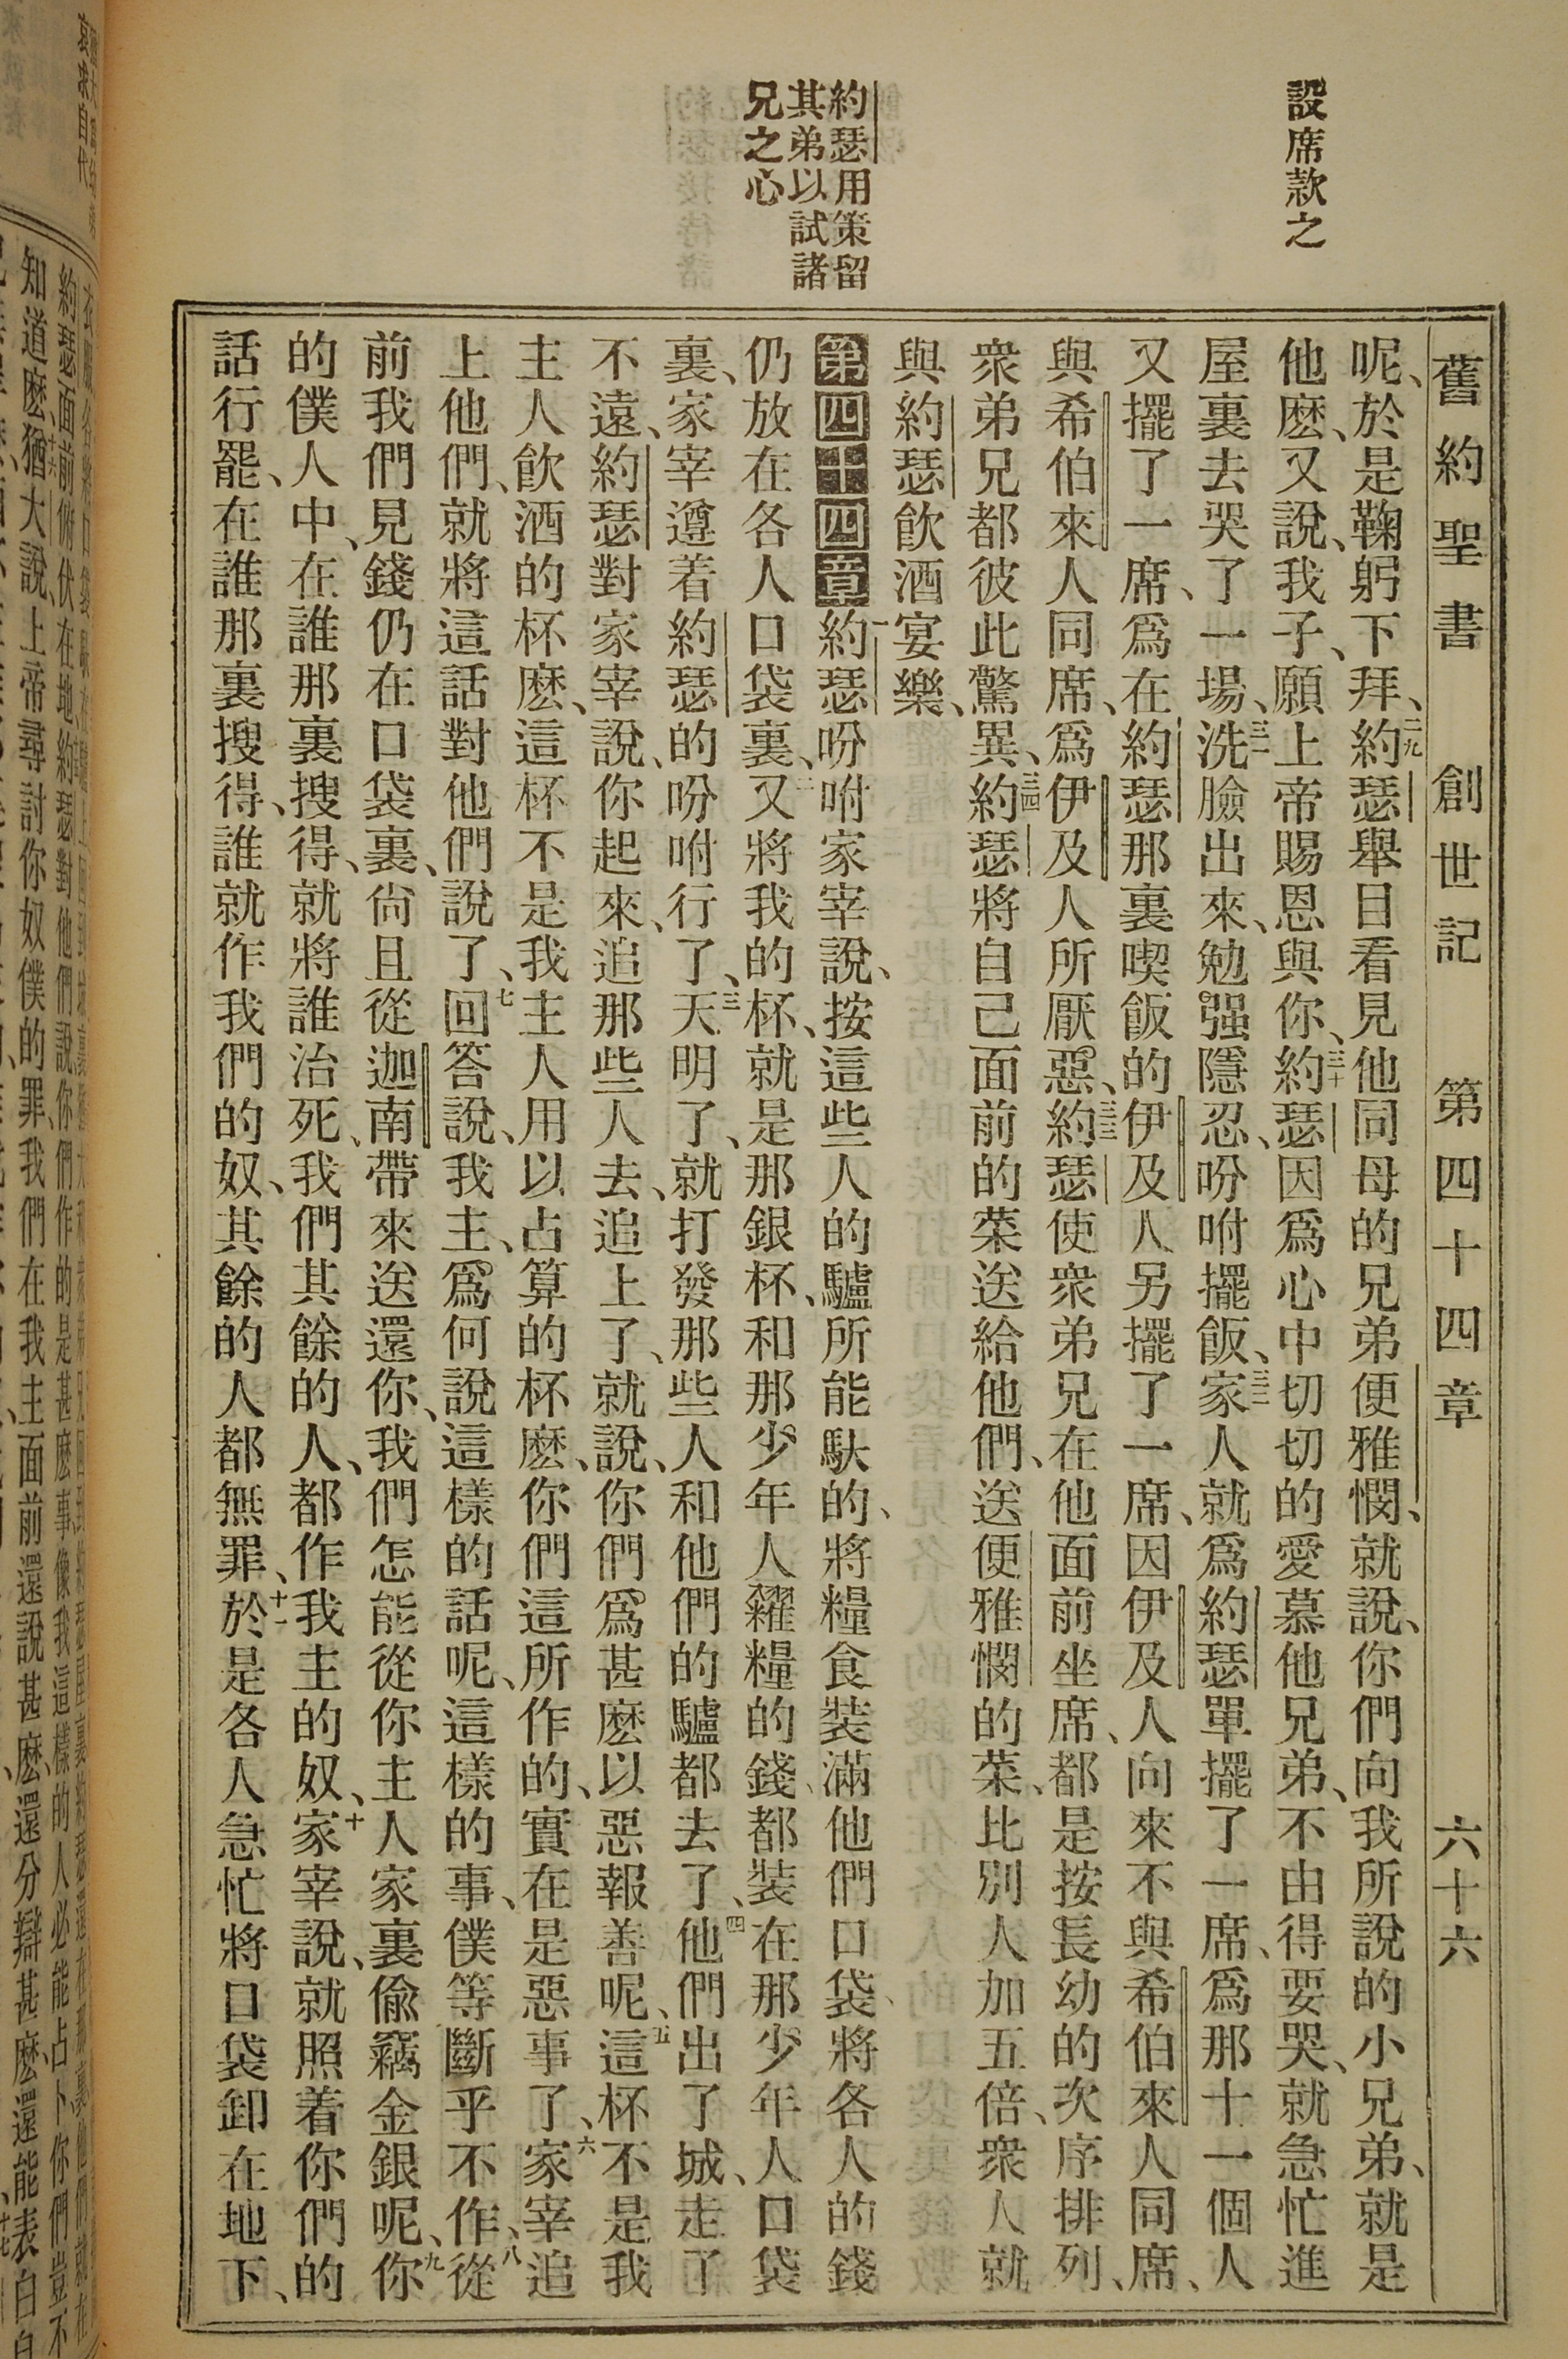 設席款之
約瑟用策留
其弟以試諸
兄之心
舊約聖書 創世記 第四十四章 六十六
呢、於是鞠躬下拜、二九約瑟舉目看見他同母的兄弟便雅憫、就說、你們向我所說的小兄弟、就是
他麽、又說、我子、願上帝賜恩與你、三十約瑟因爲心中切切的愛慕他兄弟、不由得要哭、就急忙進
屋裏去哭了一場、三一洗臉出來、勉强隱忍、吩咐擺飯、三二家人就爲約瑟單擺了一席、爲那十一個人
又擺了一席、爲在約瑟那裏喫飯的伊及人另擺了一席、因伊及人向來不與希伯來人同席、
與希伯來人同席、爲伊及人所厭惡、三三約瑟使衆弟兄在他面前坐席、都是按長幼的次序排列、
衆弟兄都彼此驚異、三四約瑟將自己面前的菜送給他們、送便雅憫的菜、比別人加五倍、衆人就
與約瑟飮酒宴樂、
第四十四章 一約瑟吩咐家宰說、按這些人的驢所能馱的、將糧食裝滿他們口袋、將各人的錢
仍放在各人口袋裏、二又將我的杯、就是那銀杯、和那少年人糴糧的錢、都裝在那少年人口袋
裏、家宰遵着約瑟的吩咐行了、三天明了、就打發那些人和他們的驢都去了、四他們出了城、走了
不遠、約瑟對家宰說、你起來、追那些人去、追上了、就說、你們爲甚麽以惡報善呢、五這杯不是我
主人飮酒的杯麽、這杯不是我主人用以占算的杯麽、你們這所作的、實在是惡事了、六家宰追
上他們、就將這話對他們說了、七回答說、我主、爲何說這樣的話呢、這樣的事、僕等斷乎不作、八從
前我們見錢仍在口袋裏、尙且從迦南帶來送還你、我們怎能從你主人家裏偸竊金銀呢、九你
的僕人中、在誰那裏搜得、就將誰治死、我們其餘的人、都作我主的奴、十家宰說、就照着你們的
話行罷、在誰那裏搜得、誰就作我們的奴、其餘的人都無罪、十一於是各人急忙將口袋卸在地下、
約瑟面前俯伏在地、約瑟對他們說、你們作的是甚麽事、像我這樣的人必能占卜、你們豈不
知道麽、十六猶大說、上帝尋討你奴僕的罪、我們在我主面前還說甚麽、還分辯甚麽、還能表白